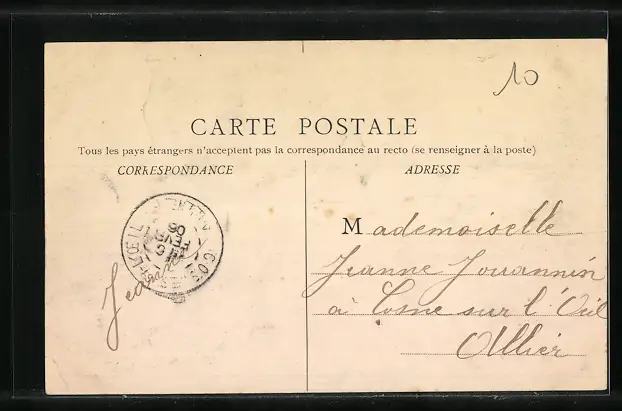 10
CARTE POSTALE
Tous les pays étrangers n'acceptent pas la correspondance au recto (se renseigner à la poste)
CORRESPONDANCE
ADRESSE
Mademoiselle
Jeanne Jouannin
à Cosne sur l'Œil
Allier
FEVR
06